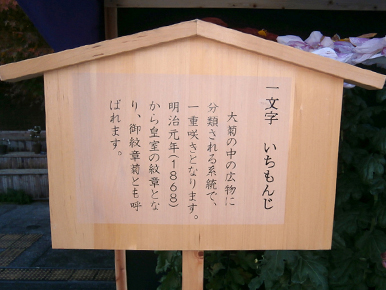 一文字　いちもんじ
大菊の中の広物に
分類される系統で、
一重咲きとなります。
明治元年(1868)
から皇室の紋章とな
り、御紋章菊とも呼
ばれます。